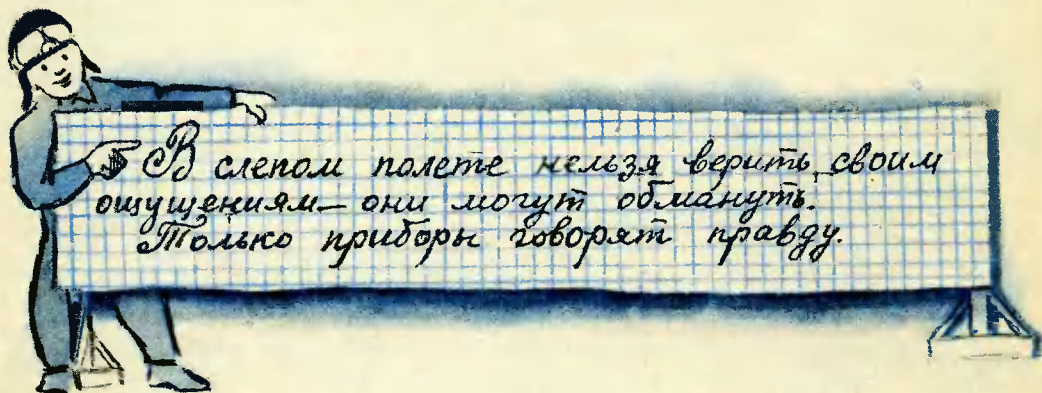 В слепом полете нельзя верить своим
ощущениям— они могут обмануть.
Только приборы говорят правду.